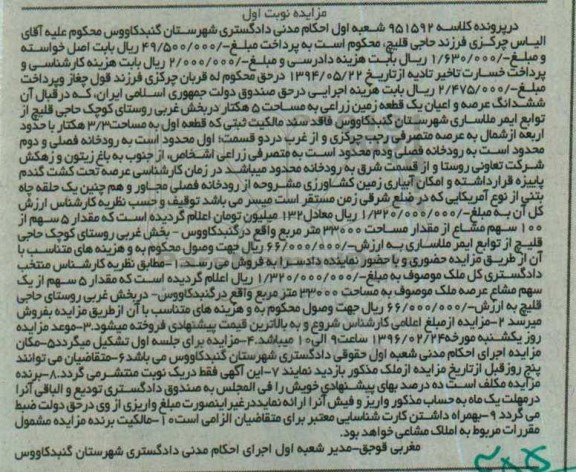 مزایده نوبت اول
درپرونده کلاسه ۹۵۱۵۹۲ شعبه اول احکام مدنی دادگستری شهرستان گنبدکاووس محکوم علیه آقای
الیاس چرکزی فرزند حاجی قلیچ، محکوم است به پرداخت مبلغ-/۴۹/۵۰۰/۰۰۰ ریال بابت اصل خواسته
و مبلغ-/۱/۶۳۰/۰۰۰ ریال بابت هزینه دادرسی و مبلغ-/۲/۰۰۰/۰۰۰ ریال بابت هزینه کارشناسی و
پرداخت خسارت تاخیر تادیه ازتاریخ ۱۳۹۴/۰۵/۲۲ درحق محکوم له قربان چرکزی فرزند قول چغاز وپرداخت
مبلغ-/۲/۴۷۵/۰۰۰ ریال بابت هزینه اجرایی درحق صندوق دولت جمهوری اسلامی ایران، که درقبال آن
ششدانگ عرصه و اعیان یک قطعه زمین زراعی به مساحت ۵ هکتار دربخش غربی روستای کوچک حاجی قلیچ از
توابع ایمر ملاساری شهرستان گنبدکاووس فاقد سند مالکیت ثبتی که قطعه اول به مساحت۳/۳ هکتار با حدود
اربعه ازشمال به عرصه متصرفی رجب چرکزی و از غرب دردو قسمت؛ اول محدود است به رودخانه فصلی و دوم
محدود است به رودخانه فصلی ودم محدود است به متصرفی زراعی اشخاص، از جنوب به باغ زیتون و زهکش
شرکت تعاونی روستا و از قسمت شرق به رودخانه محدود میباشد در زمان کارشناسی عرصه تحت کشت گندم
پاییزه قرارداشته و امکان آبیاری زمین کشاورزی مشروحه از رودخانه فصلی مجاور و هم چنین یک حلقه چاه
بتنی از نوع آمریکایی که در ضلع شرقی زمن مستقر است میسر می باشد توقیف و حسب نظریه کارشناس ارزش
کل آن به مبلغ-/۱/۳۲۰/۰۰۰/۰۰۰ ریال معادل۱۳۲ میلیون تومان اعلام گردیده است که مقدار ۵ سهم از
۱۰۰ سهم مشاع از مقدار مساحت ۳۳۰۰۰ متر مربع واقع درگنبدکاووس - بخش غربی روستای کوچک حاجی
قلیچ از توابع ایمر ملاساری به ارزش-/۶۶/۰۰۰/۰۰۰ ریال جهت وصول محکوم به و هزینه های متناسب با
آن از طریق مزایده حضوری و با حضور نماینده دادسرا به فروش می رسد.۱-مطابق نظریه کارشناس منتخب
دادگستری کل ملک موصوف به مبلغ-/۱/۳۲۰/۰۰۰/۰۰۰ ریال اعلام گردیده است که مقدار ۵ سهم از یک
سهم مشاع عرصه ملک موصوف به مساحت ۳۳۰۰۰ متر مربع واقع درگنبدکاووس- دربخش غربی روستای حاجی
قلیچ به ارزش-/۶۶/۰۰۰/۰۰۰ ریال جهت وصول محکوم به و هزینه های متناسب با آن ازطریق مزایده بفروش
میرسد ۲-مزایده ازمبلغ اعلامی کارشناس شروع و به بالاترین قیمت پیشنهادی فروخته میشود.۳-موعد مزایده
روز یکشنبه مورخه۱۳۹۶/۰۲/۲۴ ساعت۹ الی۱۰ میباشد.۴-مزایده برای جلسه اول تشکیل میگردد۵-مکان
مزایده اجرای احکام مدنی شعبه اول حقوقی دادگستری شهرستان گنبدکاووس می باشد۶-متقاضیان می توانند
پنج روزقبل ازتاریخ مزایده ازملک مذکور بازدید نمایند ۷-این آگهی فقط دریک نوبت منتشر می گردد.۸-برنده
مزایده مکلف است ده درصد بهای پیشنهادی خویش را فی المجلس به صندوق دادگستری تودیع و الباقی آنرا
درمهلت یک ماه به حساب مذکور واریز و فیش آنرا ارائه نمایددرغیر اینصورت مبلغ واریزی از وی درحق دولت ضبط
می گردد ۹-بهمراه داشتن کارت شناسایی معتبر برای متقاضیان الزامی است۱۰-مالکیت برنده مزایده مشمول
مقررات مربوط به املاک مشاعی خواهد بود.
مغربی قوجق-مدیر شعبه اول اجرای احکام مدنی دادگستری شهرستان گنبدکاووس